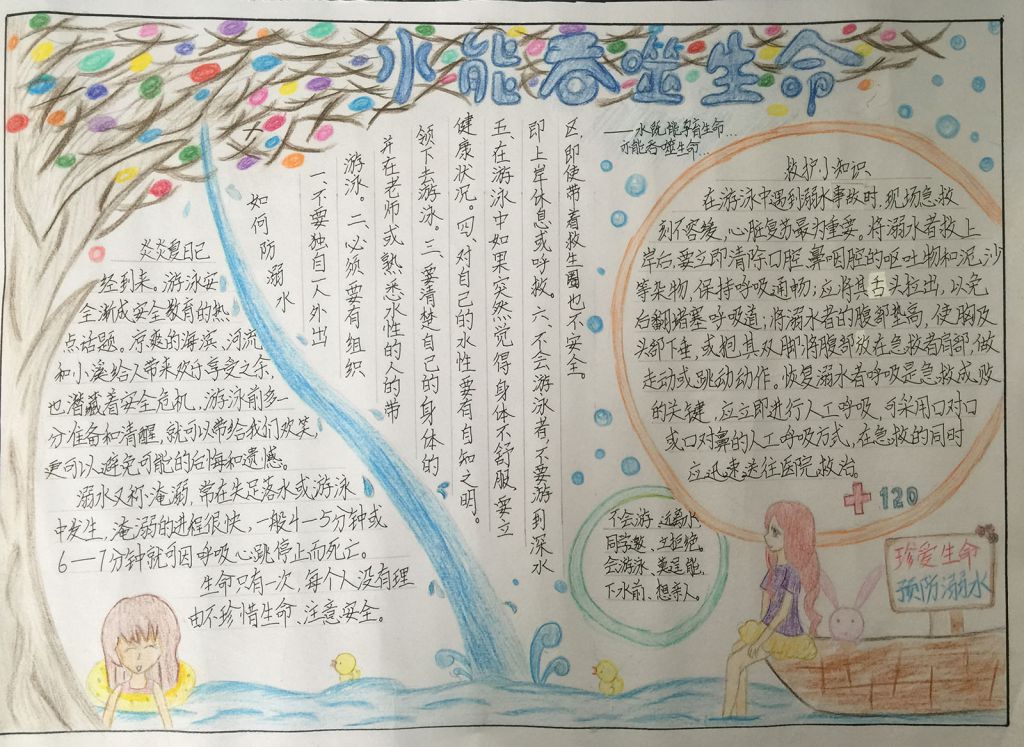 水能吞噬生命
——水既能孕育生命...
亦能吞噬生命...
炎炎夏日已
经到来。游泳安
全渐成安全教育的热
点话题。凉爽的海滨、河流
和小溪给人带来欢乐享受之余，
也潜藏着安全危机，游泳前多一
分准备和清醒，就可以带给我们欢笑，
更可以避免可能的后悔和遗憾。
溺水又称淹溺，常在失足落水或游泳
中发生，淹溺的进程很快，一般4—5分钟或
6—7分钟就可因呼吸心跳停止而死亡。
生命只有一次，每个人没有理
由不珍惜生命、注意安全。
如何防溺水
一、不要独自一人外出
游泳。二、必须要有组织
并在老师或熟悉水性的人的带
领下去游泳。三、要清楚自己的身体的
健康状况。四、对自己的水性要有自知之明。
五、在游泳中如果突然觉得身体不舒服要立
即上岸休息或呼救。六、不会游泳者，不要游到深水
区，即使带着救生圈也不安全。
救护小知识
在游泳中遇到溺水事故时，现场急救
刻不容缓，心脏复苏最为重要。将溺水者救上
岸后，要立即清除口腔、鼻咽腔的呕吐物和泥沙
等杂物，保持呼吸通畅；应将其舌头拉出，以免
后翻堵塞呼吸道；将溺水者的腹部垫高，使胸及
头部下垂，或抱其双脚将腹部放在急救者肩部，做
走动或跳动动作。恢复溺水者呼吸是急救成败
的关键，应立即进行人工呼吸，可采用口对口
或口对鼻的人工呼吸方式，在急救的同时
应迅速送往医院救治。
120
不会游、远离水，
同学邀、立拒绝。
会游泳、莫逞能，
下水前、想亲人。
珍爱生命
预防溺水